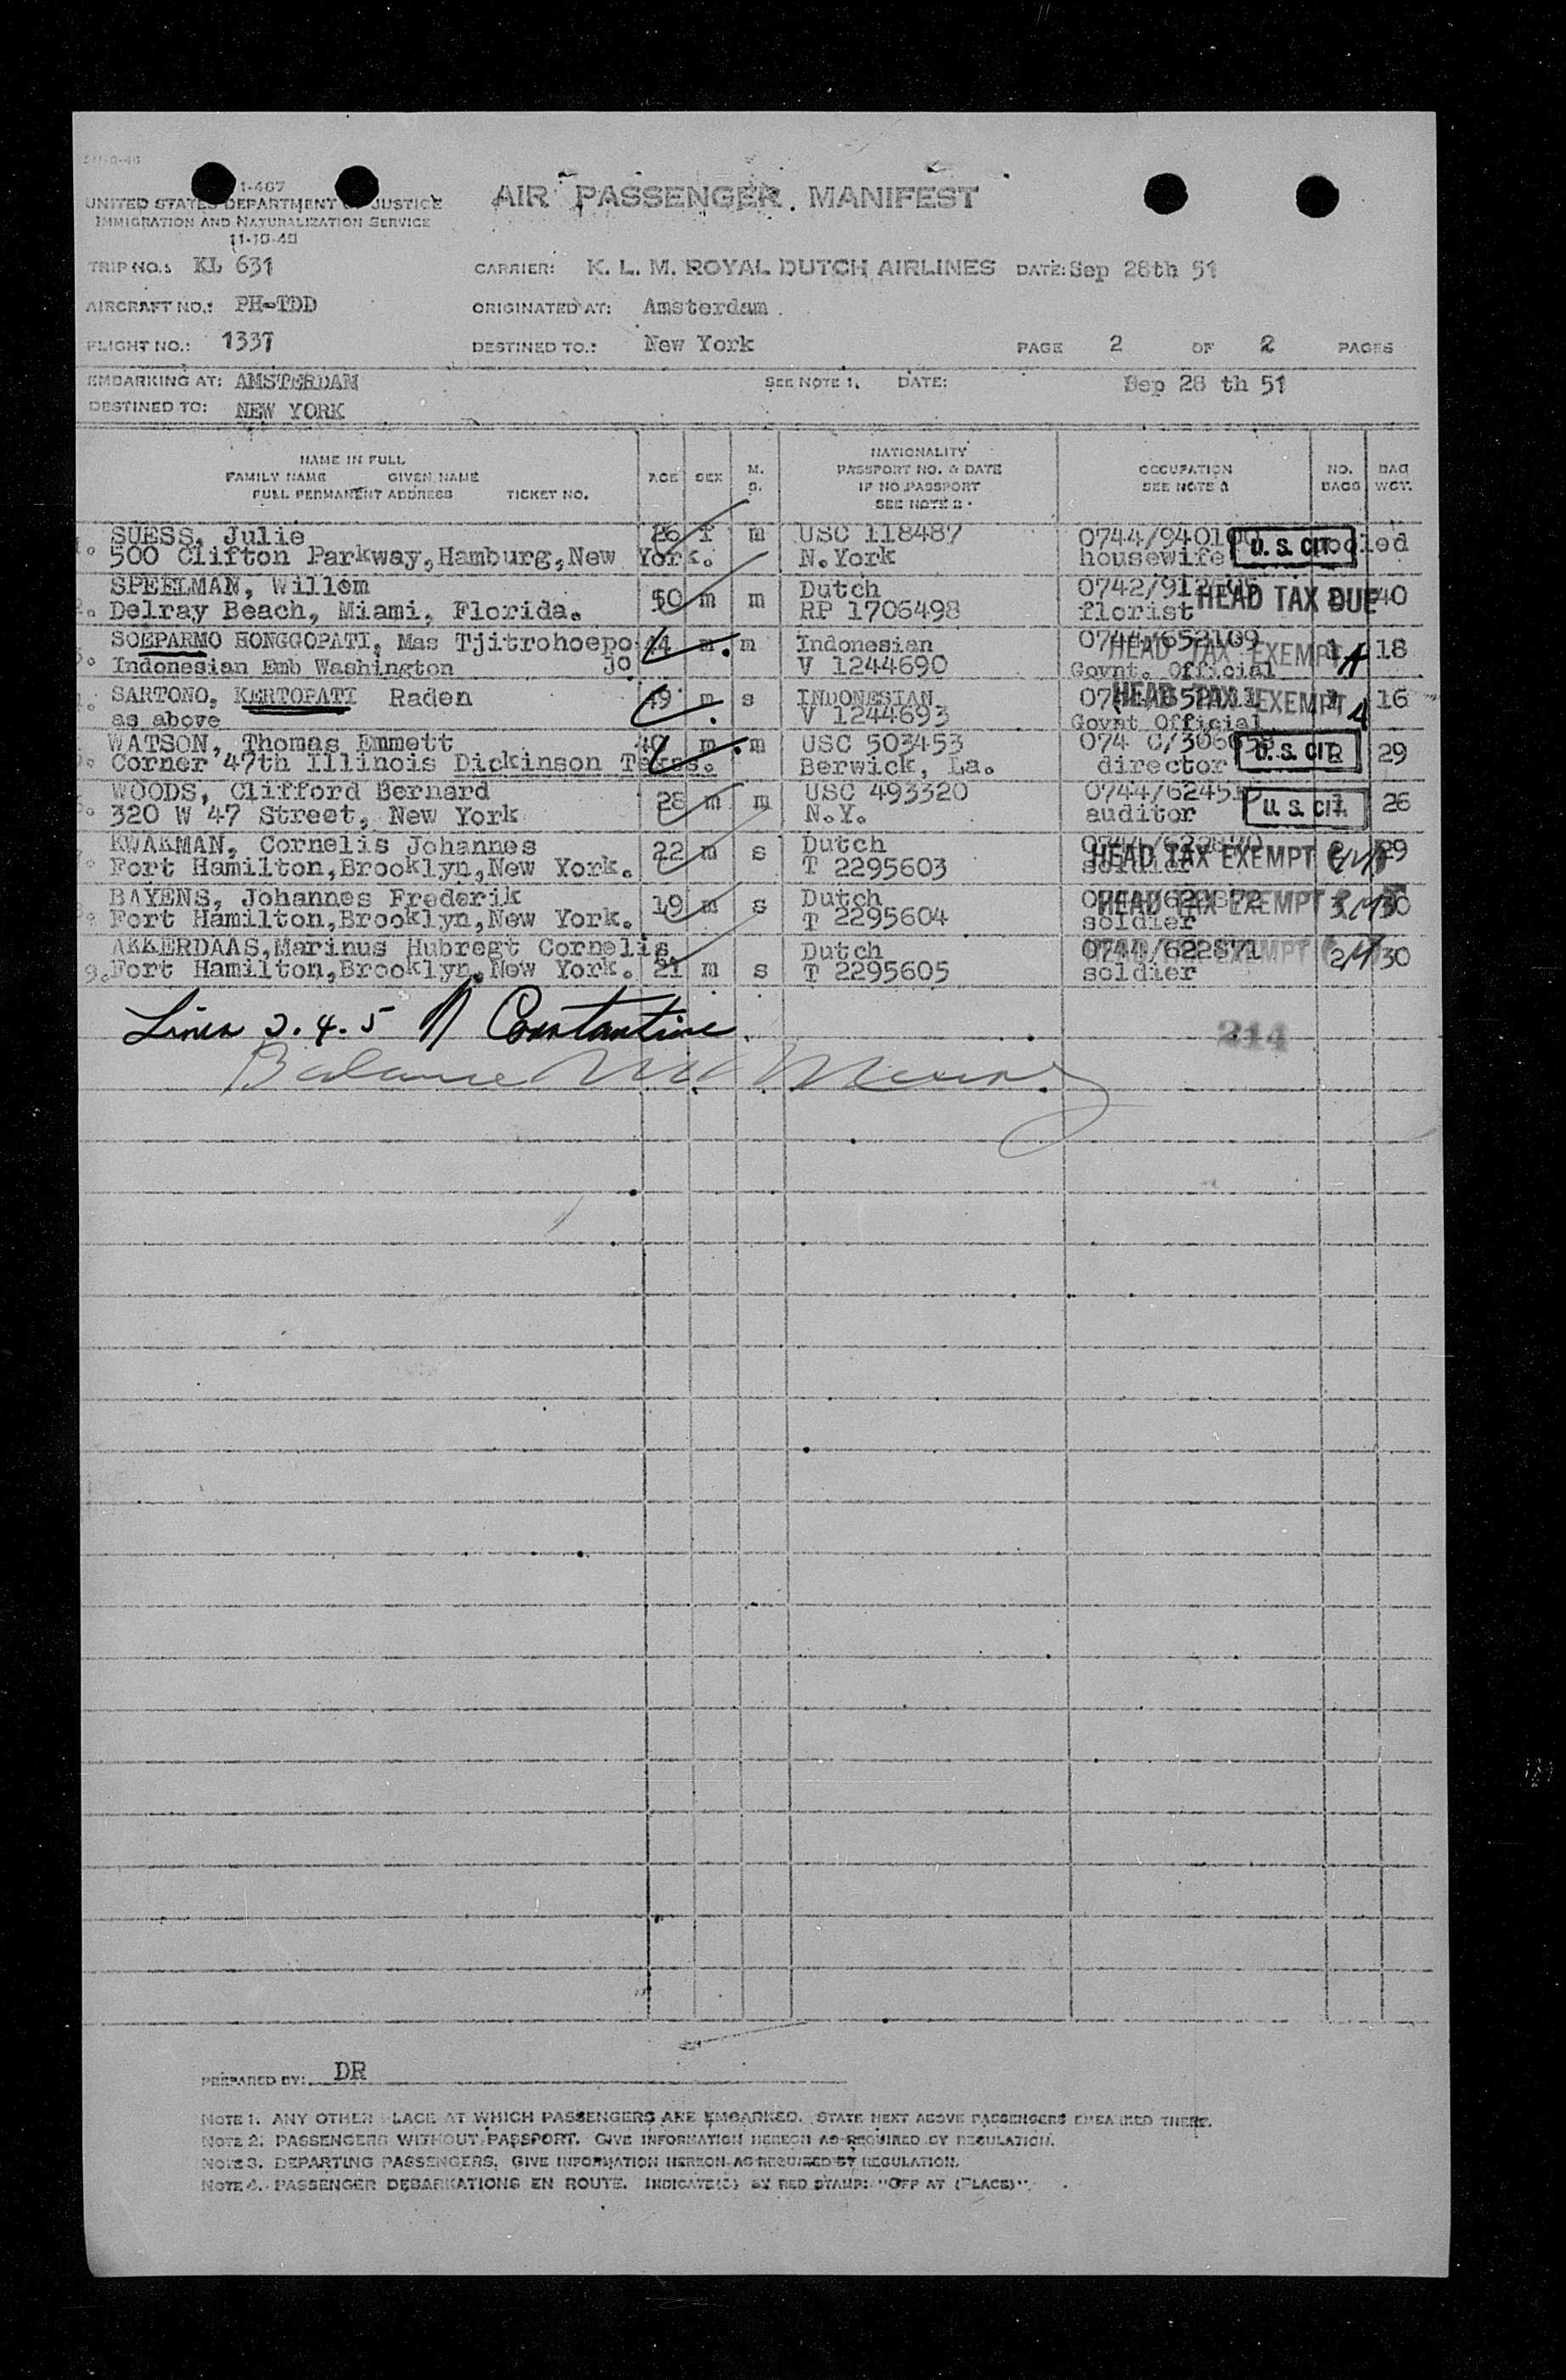 I-467
UNITED STATES DEPARTMENT OF JUSTICE
IMMIGRATION AND NATURALIZATION SERVICE
11-10-48
AIR PASSENGER MANIFEST
TRIP NO.: KL 631 CARRIER: K. L. M. ROYAL DUTCH AIRLINES DATE: Sep 28th 51
AIRCRAFT NO.: PH-TDD ORIGINATED AT: Amsterdam
FLIGHT NO.: 1337 DESTINED TO.: New York PAGE 2 OF 2 PAGES
EMBARKING AT: AMSTERDAM SEE NOTE 1. DATE: Sep 28 th 51
DESTINED TO: NEW YORK
NAME IN FULL
FAMILY NAME GIVEN NAME
FULL PERMANENT ADDRESS TICKET NO.
AGE SEX M. S.
NATIONALITY
PASSPORT NO. & DATE
IF NO PASSPORT
SEE NOTE 2
OCCUPATION
SEE NOTE 3
NO. BAGS
BAG WGT.
SUESS, Julie 26 f m USC 118487
500 Clifton Parkway,Hamburg,New York. N.York housewife U. S. CIT. pooled
SPEELMAN, Willem 50 m m Dutch
Delray Beach, Miami, Florida. RP 1706498 florist HEAD TAX DUE 40
SOEPARMO HONGGOPATI, Mas Tjitrohoepo 44 m m Indonesian 0744/653109 HEAD TAX EXEMPT 18
Indonesian Emb Washington jo V 1244690 Govnt. Official
SARTONO, KERTOPATI Raden 49 m s INDONESIAN HEAD TAX EXEMPT 16
as above V 1244693 Govnt Official
WATSON, Thomas Emmett m m USC 503453 U. S. CIT. 29
Corner 47th Illinois Dickinson Texas. Berwick, La. director
WOODS, Clifford Bernard 28 m m USC 493320 U. S. CIT. 26
320 W 47 Street, New York N.Y. auditor
KWAKMAN, Cornelis Johannes 22 m s Dutch HEAD TAX EXEMPT 29
Fort Hamilton,Brooklyn,New York. T 2295603 soldier
BAYENS, Johannes Frederik 19 m s Dutch 0744/622872 HEAD TAX EXEMPT 30
Fort Hamilton,Brooklyn,New York. T 2295604 soldier
AKKERDAAS,Marinus Hubregt Cornelis Dutch 0744/622871 EXEMPT 30
9. Fort Hamilton,Brooklyn,New York. 21 m s T 2295605 soldier
Lines 3.4.5 Constantine
214
Balance
PREPARED BY: DR
NOTE 1. ANY OTHER PLACE AT WHICH PASSENGERS ARE EMBARKED. STATE NEXT ABOVE PASSENGERS EMBARKED THERE.
NOTE 2. PASSENGERS WITHOUT PASSPORT. GIVE INFORMATION HEREON AS REQUIRED BY REGULATION.
NOTE 3. DEPARTING PASSENGERS. GIVE INFORMATION HEREON AS REQUIRED BY REGULATION.
NOTE 4. PASSENGER DEBARKATIONS EN ROUTE. INDICATE(S) BY RED STAMP: "OFF AT (PLACE)".